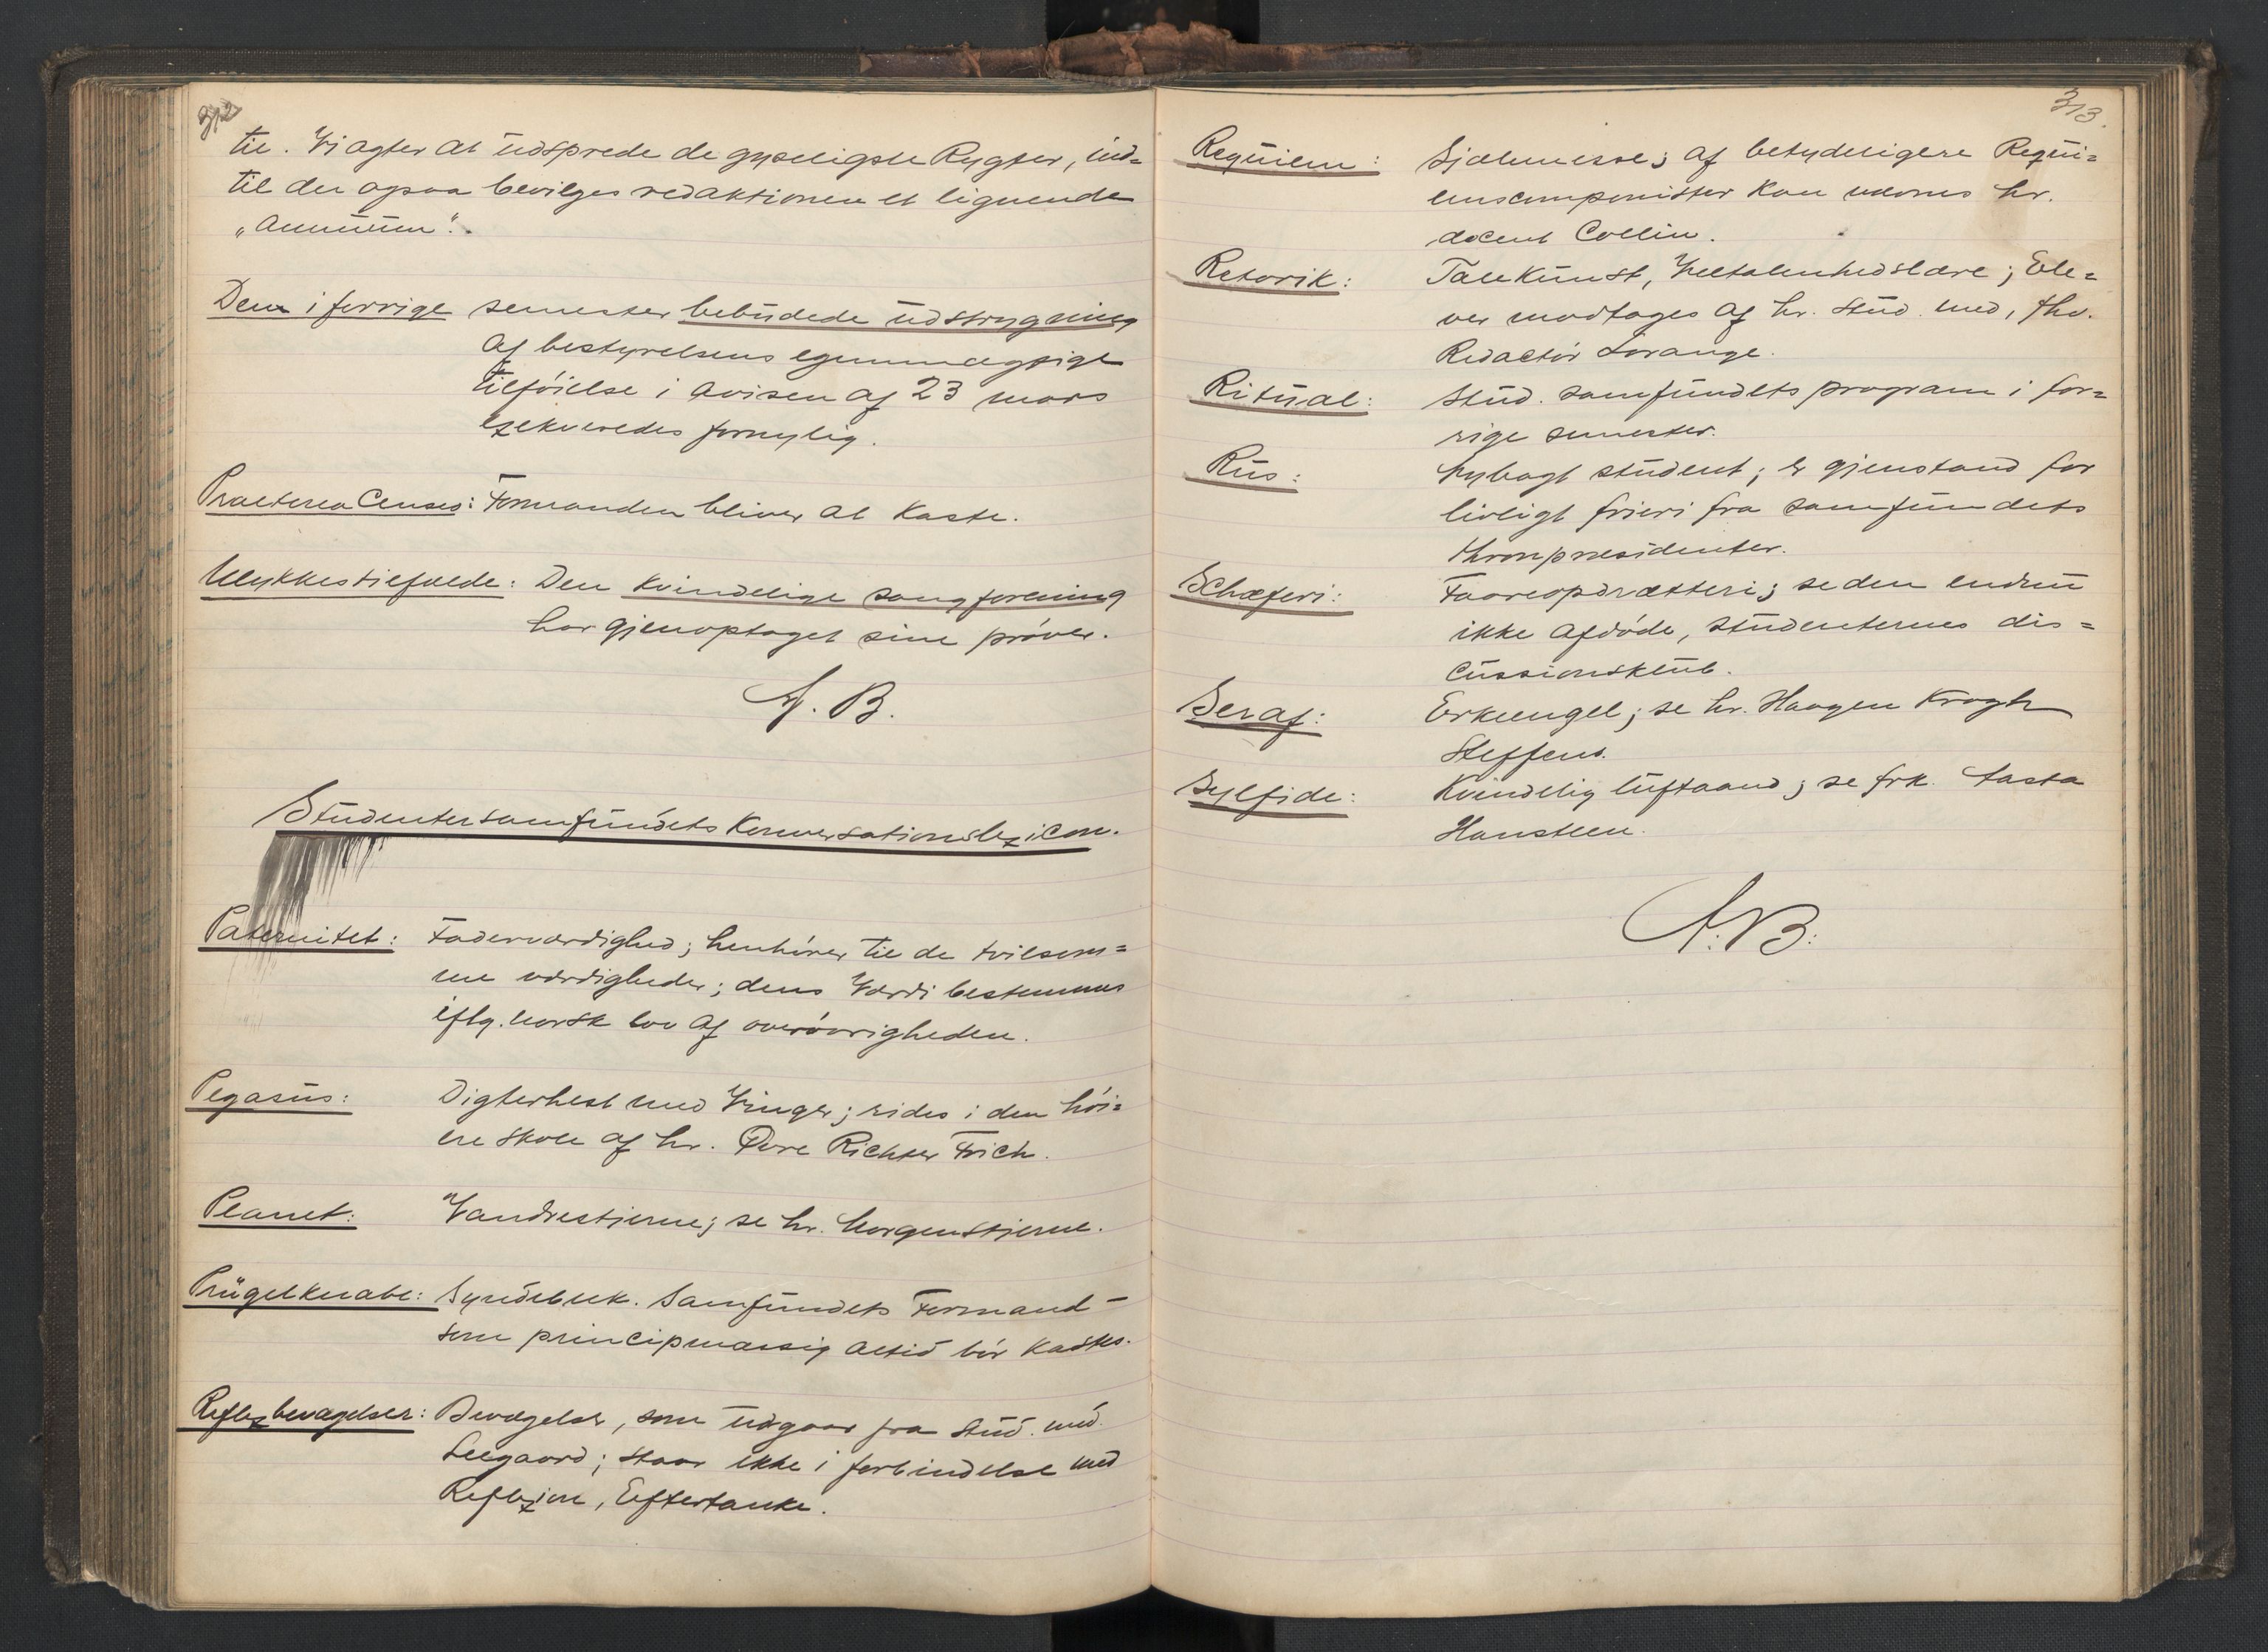 312
til. Vi agter at udsprede de gyseligste Rygter, ind=
til der ogsaa bevilges redaktionen et lignende
„annuum".
Den i forrige semester bebudede udstrygning
af bestyrelsens egenmægtige
tilføielse i avisen af 23 mars
exekveredes fornylig.
Praeterea Censeo: Formanden bliver at kaste.
Ulykkestilfælde: Den kvindelige sangforening
har gjenoptaget sine prøver.
A. B.
Studentersamfundets Konversationslexicon.
Paternitet: Faderværdighed; henhører til de tvilsom=
me værdigheder; dens Værdi bestemmes
iflg. norsk lov af overøvrigheden.
Pegasus: Digterhest med Vinger; rides i den høi=
ere skole af hr. Øvre Richter Frich.
Planet: Vandrestjerne; se hr. Morgenstjerne.
Prügelknabe: Syndebuk. Samfundets Formand –
som principmæssig altid bør kastes.
Reflexbevægelser: Bevægelser, som udgaar fra stud. med.
Leegaard; staar ikke i forbindelse med
Reflexion, Eftertanke.
313.
Requiem: Sjælemesse; af betydeligere Requi=
emscomponister kan nævnes hr.
docent Collin.
Retorik: Talekunst, Veltalenhedslære; Ele=
ver modtages af hr. stud. med, fhv.
Redactør Lorange.
Ritual: Stud. samfundets program i for=
rige semester.
Rus: Nybagt student; er gjenstand for
livligt frieri fra samfundets
thronpræsidenter.
Schæferi: Faareopdrætteri; se den endnu
ikke afdøde, studenternes dis=
cussionsklub.
Seraf: Erkeengel; se hr. Haagen Krogh
Steffens.
Sylfide: Kvindelig luftaand; se frk. Aasta
Hansteen.
A. B.